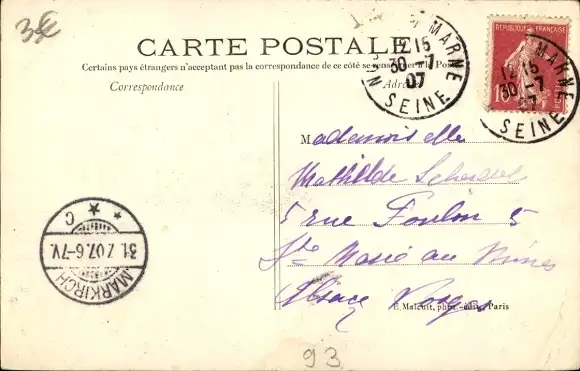 3€
CARTE POSTALE
Certains pays étrangers n'acceptent pas la correspondance de ce côté se renseigner à la Poste
Correspondance
Adresse
MARNE
12 15
30 -7
07
SEINE
REPUBLIQUE FRANÇAISE
10
MARNE
12 15
30 -7
SEINE
Mademoiselle
Mathilde
5 rue Foulon 5
Ste Marie au Mines
Alsace Vosges
MARKIRCH
31.7.07.6-7V.
C
E. Malcuit, phot.-édit., Paris
93